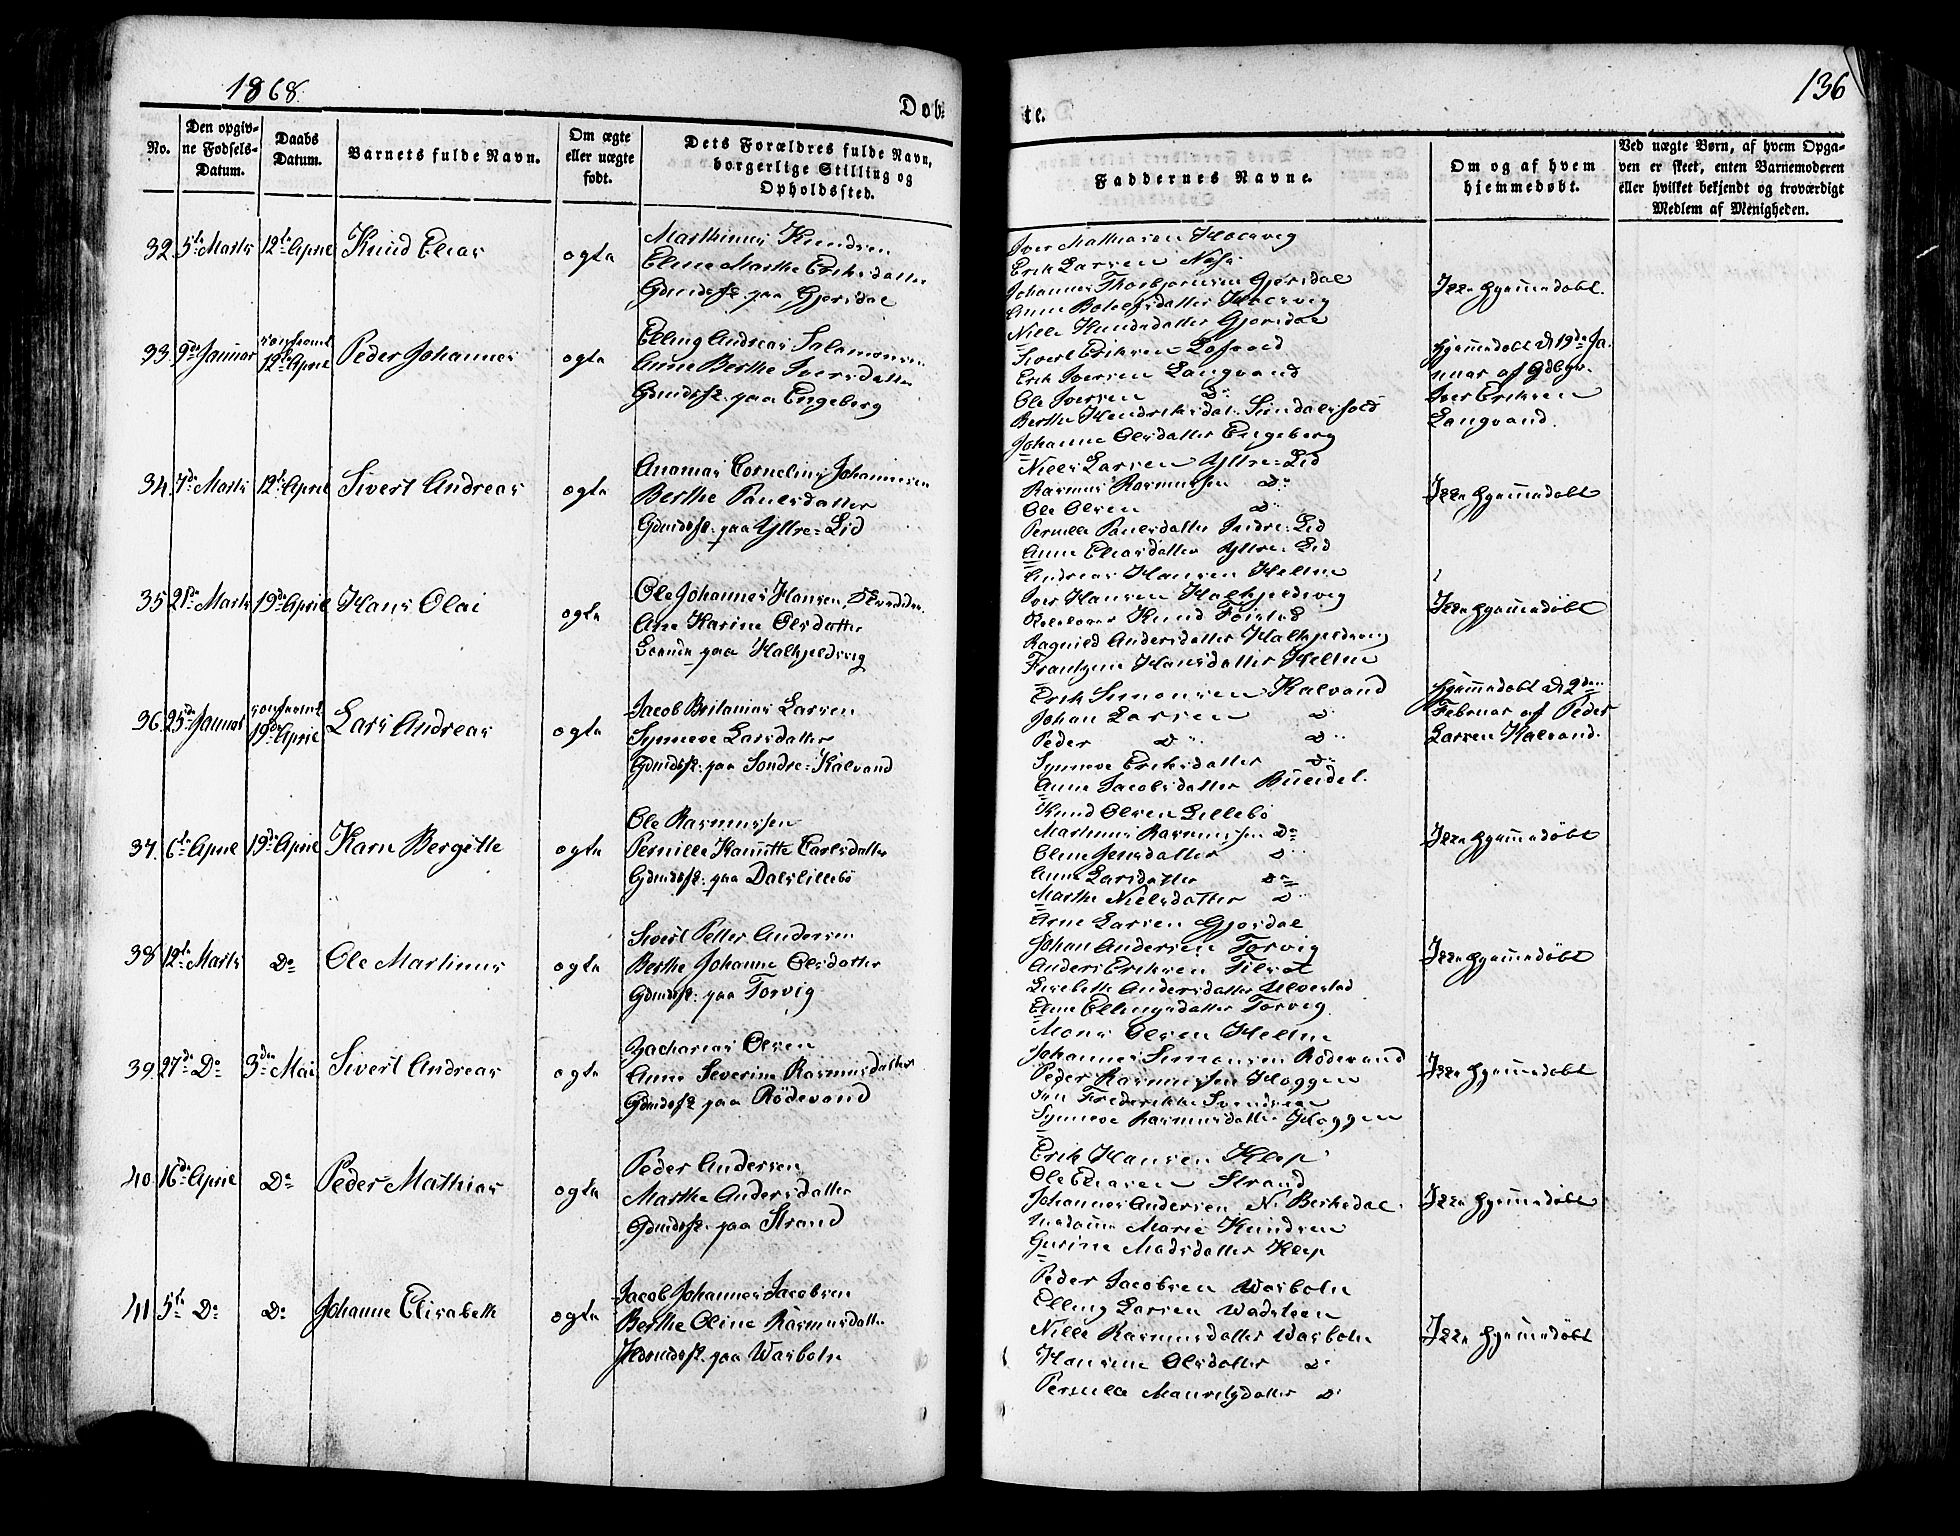 1868.
136
Døb-
te.
No.
Den opgiv-
ne Fødsels-
Datum.
Daabs
Datum.
Barnets fulde Navn.
Om ægte
eller uægte
født.
Dets Forældres fulde Navn,
borgerlige Stilling og
Opholdssted.
Faddernes Navne.
Om og af hvem
hjemmedøbt.
Ved uægte Børn, af hvem Opga-
ven er skeet, enten Barnemoderen
eller hvilket bekjendt og troværdigt
Medlem af Menigheden.
32. 5te Marts 12te April Knud Elias ægte
Marthinus Knudsen
Eline Marthe Eriksdatter
Gdmdsfk. paa Gjørsdal
Iver Mathiasen
Erik Larsen
Johannes Thorbjørnsen Gjørsdal
Anne
Nille Knudsdatter Gjørsdal
Ikke hjemmedøbt.
33. 9de Januar confirmt 12te April Peder Johannes ægte
Elling Andreas Salamonsen
Anne Berthe Iversdatter
Gdmdsfk. paa Engeberg
Sivert Eriksen
Erik Iversen Langvand
Ole Iversen Do
Berthe Hendriksdat.
Johanne Olsdatter Engeberg
Hjemmedøbt d 19de Ja-
nuar af Gdbgr.
Iver Eriksen
Langvand.
34. 7de Marts 12te April Sivert Andreas ægte
Ananias Cornelius Johannesen
Berthe Paulsdatter
Gdmdsfk. paa Yttre-Lid
Niels Larsen Yttre-Lid
Rasmus Rasmussen Do
Ole Olsen Do
Pernille Paulsdatter Indre-Lid
Anne Eliasdatter Yttre Lid
Ikke hjemmedøbt
35. 21de Marts 19de April Hans Olai ægte
Ole Johannes Hansen,
Ane Karine Olsdatter
paa Halkjeldsvig
Andreas Hansen Helm
Iver Hansen Halkjeldsvig
Knud
Ragnild Andersdatter Halkjeldsvig
Frantzine Hansdatter Helm
Ikke hjemmedøbt
36. 25de Januar confirmt 19de April Lars Andreas ægte
Jacob Britanius Larsen
Synneve Larsdatter
Gdmdsfk. paa Søndre-Kalvand
Erik Simonsen Kalvand
Johan Larsen Do
Peder Do Do
Synneve Eriksdatter Do
Anne Jacobsdatter
Hjemmedøbt d 2den
Februar af Peder
Larsen Kalvand.
37. 6te April 19de April Karn Bergitte ægte
Ole Rasmussen
Pernille Karlsdatter
Gdmdsfk. paa Dalslillebø
Knud Olsen Lillebø
Martinus Rasmussen Do
Oline Jensdatter Do
Anne Larsdatter Do
Marthe Nielsdatter Do
Ikke hjemmedøbt
38. 12te Marts Do Ole Martinus ægte
Sivert Petter Andersen
Berthe Johanne Olsdatter
Gdmdsfk. paa Torvig
Arne Larsen Gjørsdal
Johan Andersen Torvig
Anders Eriksen
Lisebeth Andersdatter Ulvestad
Eline Ellingsdatter Torvig
Ikke hjemmedøbt
39. 27de Do 3den Mai Sivert Andreas ægte
Zacharias Olsen
Anne Severine Rasmusdatter
Gdmdsfk. paa Rødevand
Mons Olsen Helm
Johannes Simonsen Rødevand
Peder Rasmussen Hoggen
Frederikke Svendsen
Synneve Rasmusdatter Hoggen
Ikke hjemmedøbt
40. 16de April Do Peder Mathias ægte
Peder Andersen
Marthe Andersdatter
Gdmdsfk. paa Strand
Erik Hansen Klep
Ole Eliasen Strand
Johannes Andersen N. Berkedal.
Madame Marie Knudsen
Gurine Madsdatter Klep
Ikke hjemmedøbt
41. 5te Do Do Johanne Elisabeth ægte
Jacob Johannes Jacobsen
Berthe Oline Rasmusdatter
paa Wasboln
Peder Jacobsen Wasboln
Elling Larsen Wadsteen
Nille Rasmusdatter Wasboln
Hansine Olsdatter Do
Pernilla Do
Ikke hjemmedøbt